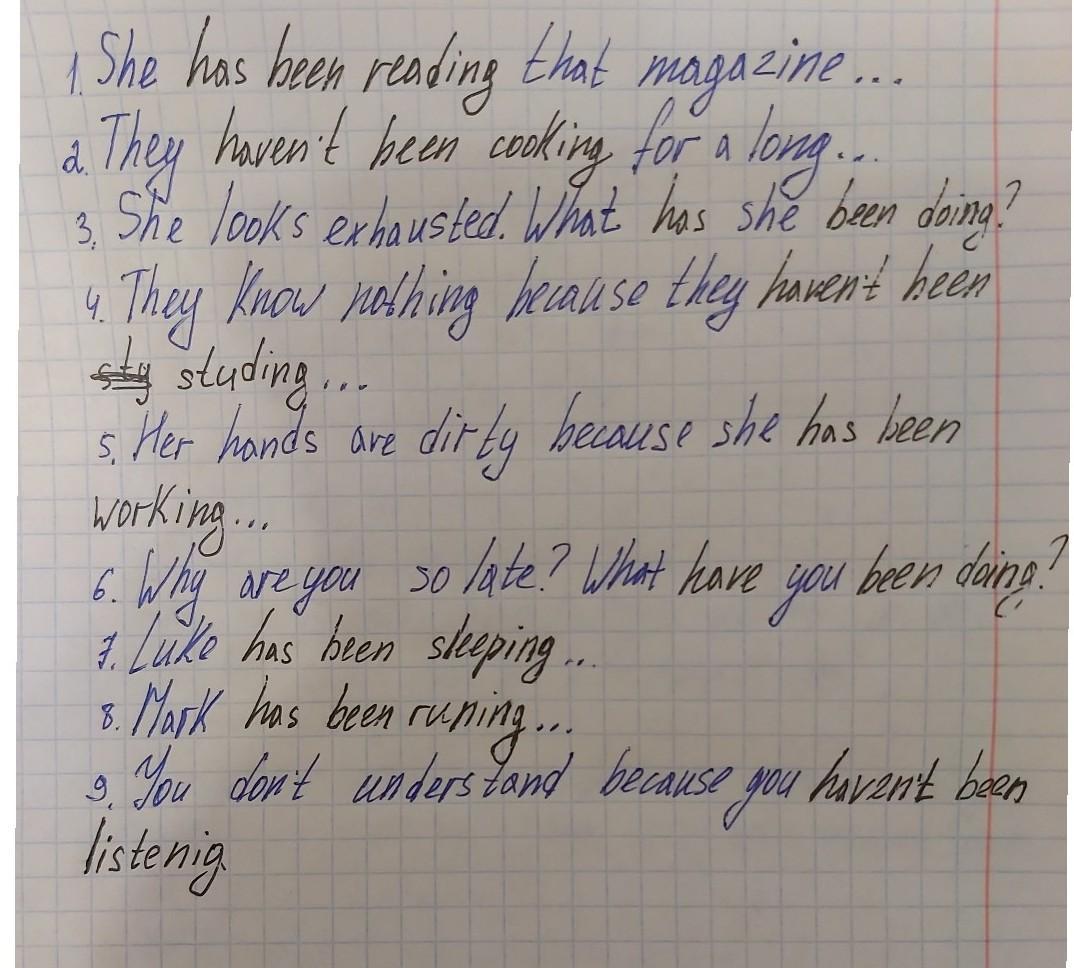 1. She has been reading that magazine...
2. They haven't been cooking for a long...
3. She looks exhausted. What has she been doing?
4. They know nothing because they haven't been
sty studing...
5. Her hands are dirty because she has been
working...
6. Why are you so late? What have you been doing?
7. Luke has been sleeping...
8. Mark has been runing...
9. You don't understand because you haven't been
listenig